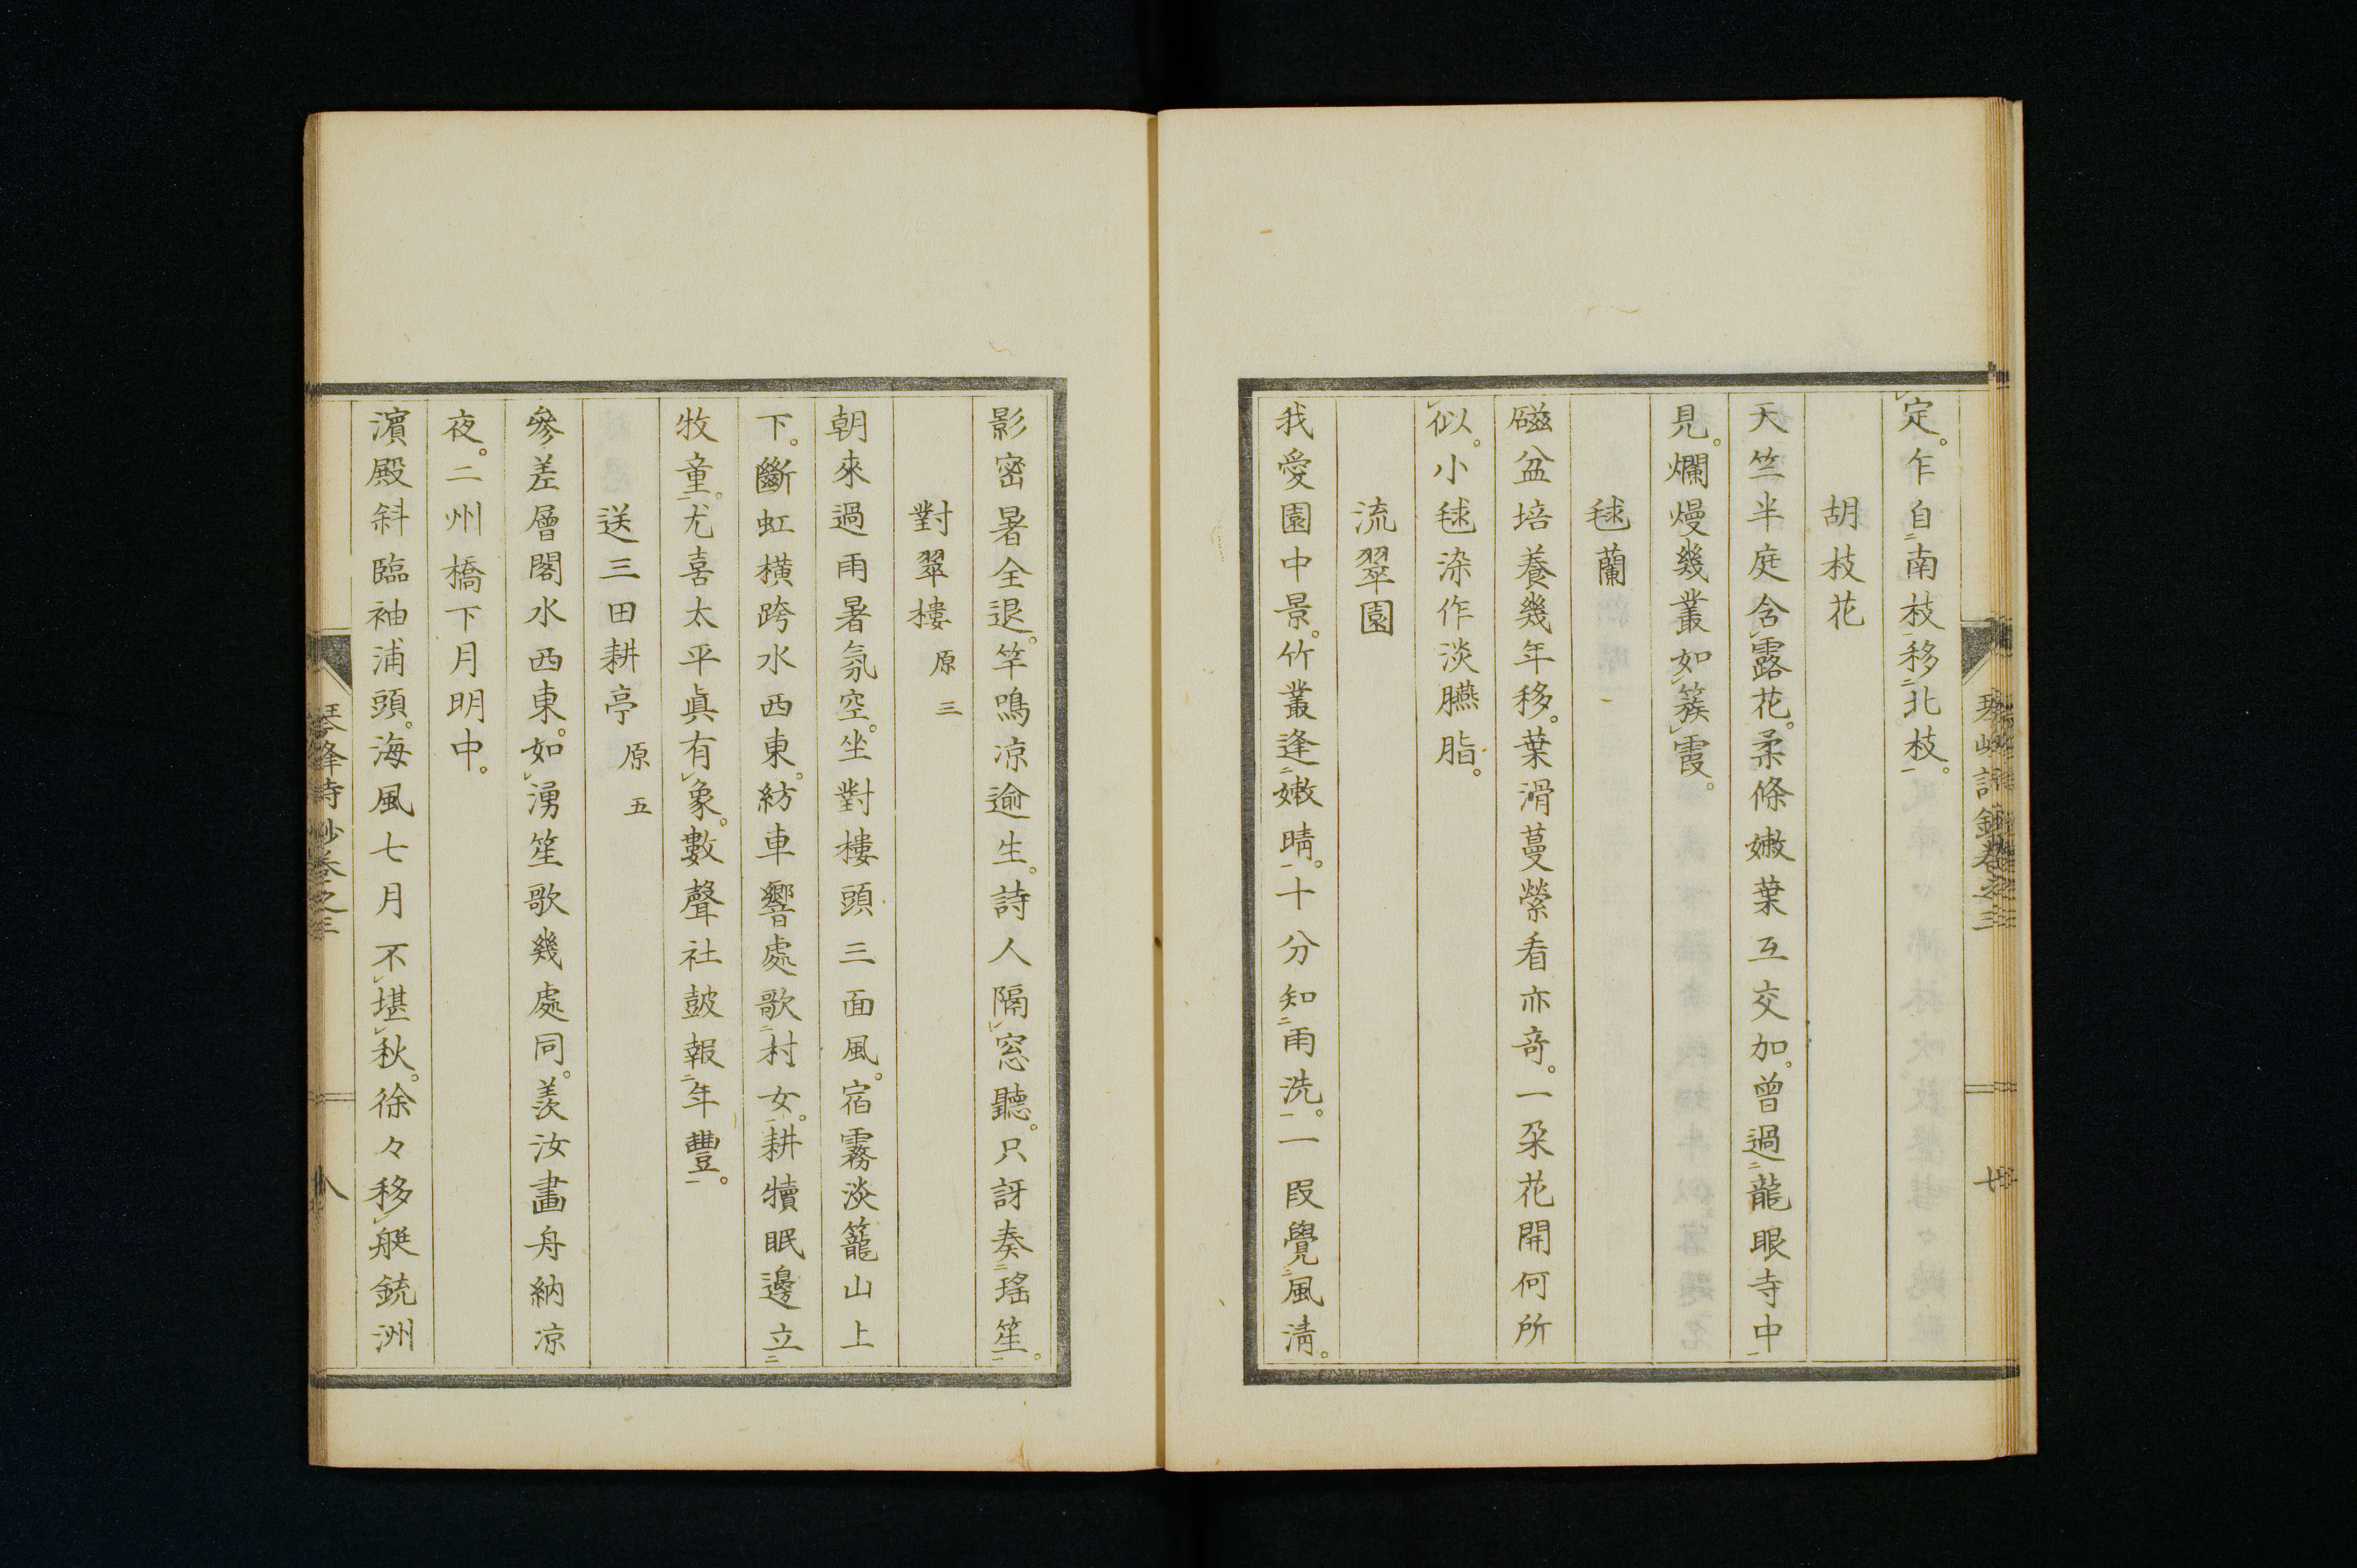 定。乍自二南枝一移二北枝一。
胡枝花
天竺半庭含レ露花。柔條嫩葉互交加。曾過二龍眼寺中一
見。爛熳幾叢如レ簇レ霞。
毬蘭
磁盆培養幾年移。葉滑蔓縈看亦奇。一朶花開何所
レ似。小毬染作淡臙脂。
流翠園
我愛園中景。竹叢逢二嫩晴一。十分知二雨洗一。一段覺二風淸一。
影密暑全退。竿鳴凉逾生。詩人隔レ窓聽。只訝奏二瑤笙一。
對翠樓 原三
朝來過雨暑氛空。坐對樓頭三面風。宿霧淡籠山上
下。斷虹橫跨水西東。紡車響處歌二村女一。耕犢眠邊立二
牧童一。尤喜太平眞有レ象。數聲社鼓報二年豐一。
送三田耕亭 原五
參差層閣水西東。如レ湧笙歌幾處同。羨汝畫舟納凉
夜。二州橋下月明中。
濵殿斜臨袖浦頭。海風七月不レ堪レ秋。徐々移レ艇銃洲
琴峰詩鈔卷之三
八